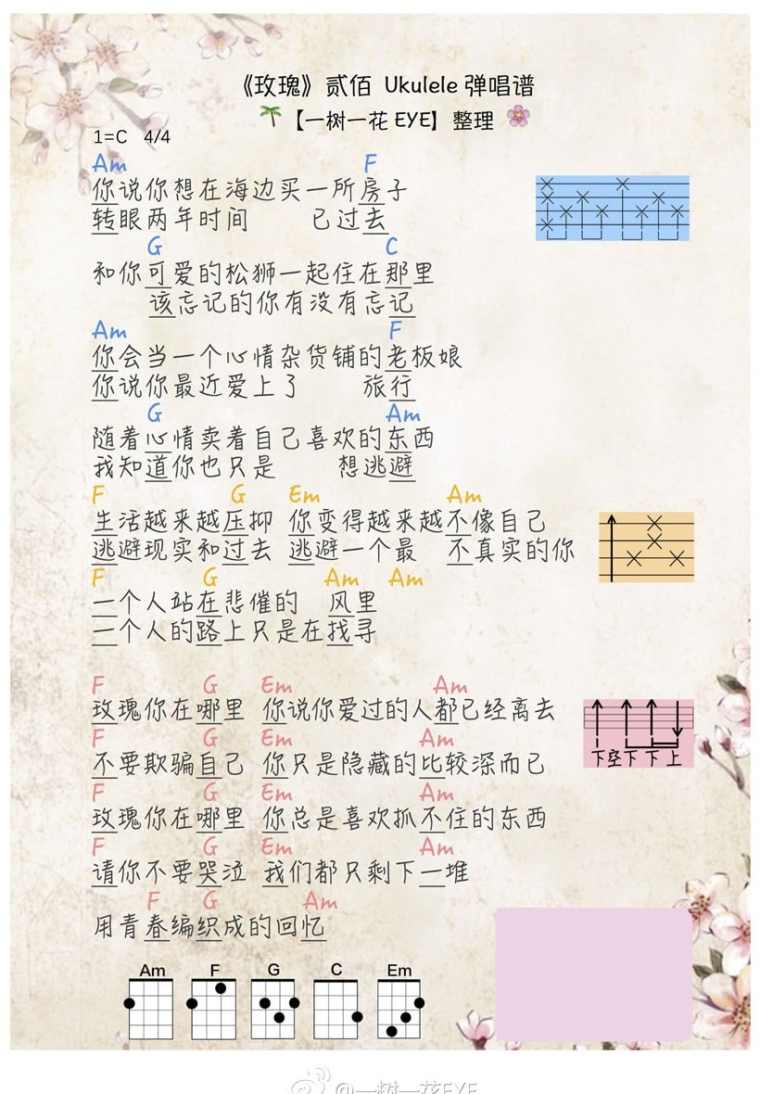 《玫瑰》贰佰 Ukulele 弹唱谱
【一树一花 EYE】整理
1=C 4/4
Am F
你说你想在海边买一所房子
转眼两年时间 已过去
G C
和你可爱的松狮一起住在那里
该忘记的你有没有忘记
Am F
你会当一个心情杂货铺的老板娘
你说你最近爱上了 旅行
G Am
随着心情卖着自己喜欢的东西
我知道你也只是 想逃避
F G Em Am
生活越来越压抑 你变得越来越不像自己
逃避现实和过去 逃避一个最 不真实的你
F G Am Am
一个人站在悲催的 风里
一个人的路上只是在找寻
F G Em Am
玫瑰你在哪里 你说你爱过的人都已经离去
下空下下上
F G Em Am
不要欺骗自己 你只是隐藏的比较深而已
F G Em Am
玫瑰你在哪里 你总是喜欢抓不住的东西
F G Em Am
请你不要哭泣 我们都只剩下一堆
F G Am
用青春编织成的回忆
Am F G C Em
@一树一花EYE